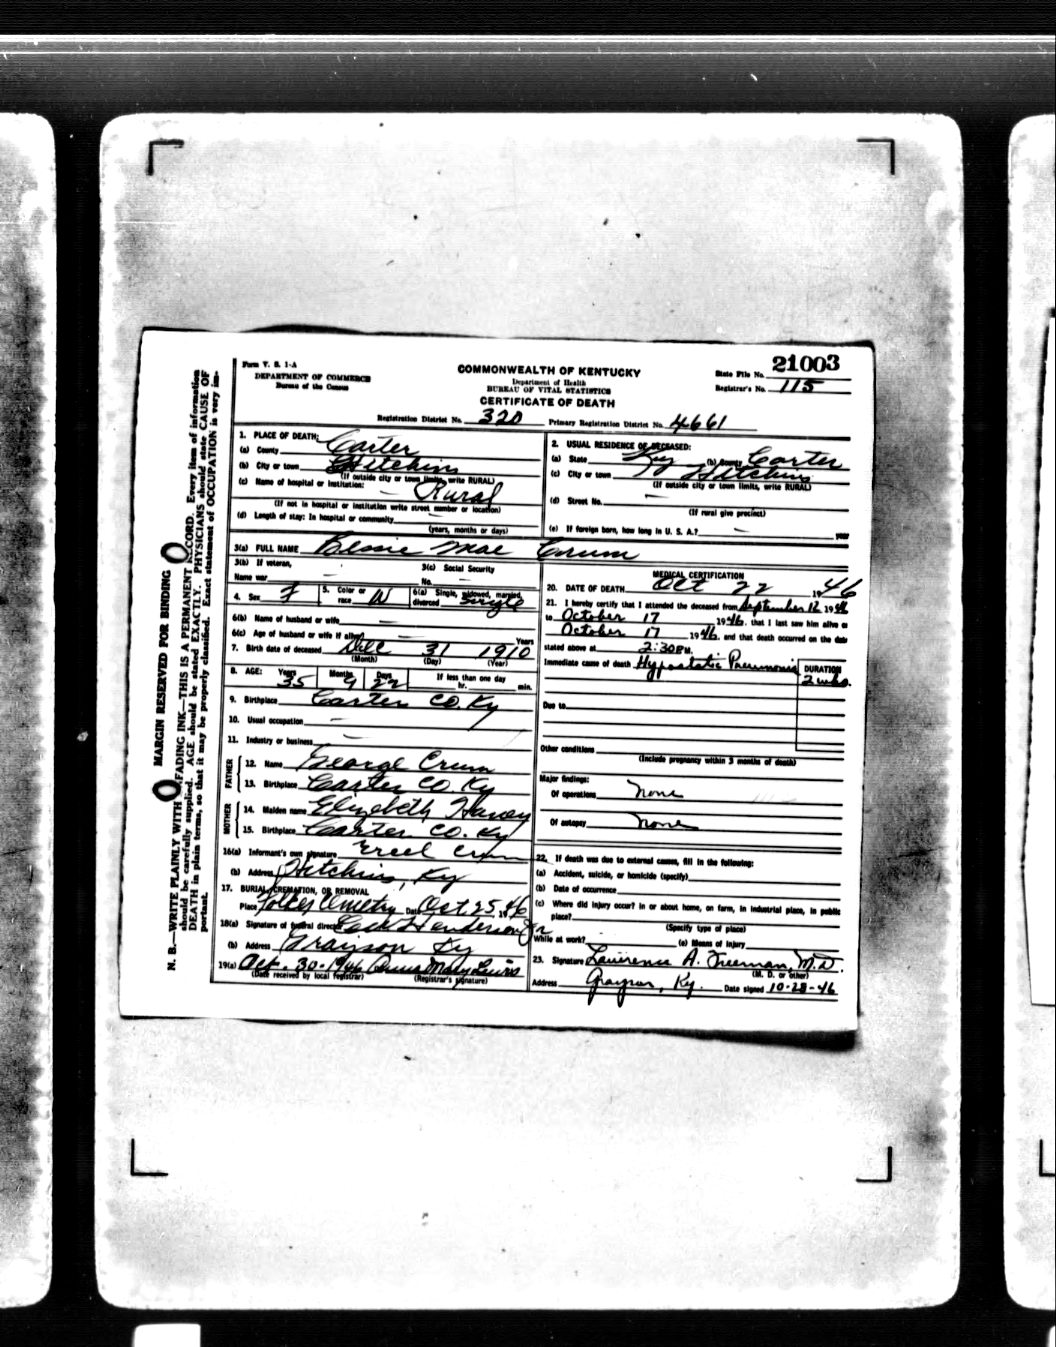 Form V. S. 1-A
DEPARTMENT OF COMMERCE
Bureau of the Census
COMMONWEALTH OF KENTUCKY
Department of Health
BUREAU OF VITAL STATISTICS
CERTIFICATE OF DEATH
State File No. 21003
Registrar's No. 115
Registration District No. 320 Primary Registration District No. 4661
1. PLACE OF DEATH:
(a) County Carter
(b) City or town Hitchins
(If outside city or town limits, write RURAL)
(c) Name of hospital or institution: Rural
(If not in hospital or institution write street number or location)
(d) Length of stay: In hospital or community
(years, months or days)
2. USUAL RESIDENCE OF DECEASED:
(a) State Ky (b) County Carter
(c) City or town Hitchins
(If outside city or town limits, write RURAL)
(d) Street No.
(If rural give precinct)
(e) If foreign born, how long in U. S. A.? — year
3(a) FULL NAME Mae Crum
3(b) If veteran,
Name war —
3(c) Social Security
No. —
4. Sex F
5. Color or race W
6(a) Single, widowed, married, divorced Single
6(b) Name of husband or wife —
6(c) Age of husband or wife if alive — Years
7. Birth date of deceased Dec 31 1910
(Month) (Day) (Year)
8. AGE: Years 35 Months 9 Days 22 If less than one day
hr. min.
9. Birthplace Carter Co. Ky
10. Usual occupation —
11. Industry or business —
FATHER
12. Name George Crum
13. Birthplace Carter Co Ky
MOTHER
14. Maiden name Elizabeth
15. Birthplace Carter Co. Ky
16(a) Informant's own signature Ercel Crum
(b) Address Hitchins, Ky
17. BURIAL, CREMATION, OR REMOVAL
Place Date Oct. 25, 1946
18(a) Signature of funeral director Henderson Jr
(b) Address Grayson Ky
19(a) Oct. 30-1946 Anna Mary Lewis
(Date received by local registrar) (Registrar's signature)
MEDICAL CERTIFICATION
20. DATE OF DEATH Oct 22 1946
21. I hereby certify that I attended the deceased from September 12 1946
to October 17 1946, that I last saw him alive on
October 17 1946, and that death occurred on the date
stated above at 2:30 P.M.
Immediate cause of death Hypostatic Pneumonia
DURATION
2 wks.
Due to
Other conditions
(Include pregnancy within 3 months of death)
Major findings:
Of operations none
Of autopsy none
22. If death was due to external causes, fill in the following:
(a) Accident, suicide, or homicide (specify)
(b) Date of occurrence
(c) Where did injury occur? In or about home, on farm, in industrial place, in public
place?
(Specify type of place)
While at work? (e) Means of injury
23. Signature Lawrence A. Freeman, M.D.
(M. D. or other)
Address Grayson, Ky. Date signed 10-28-46
MARGIN RESERVED FOR BINDING
N. B.—WRITE PLAINLY WITH UNFADING INK—THIS IS A PERMANENT RECORD. Every item of information
should be carefully supplied. AGE should be stated EXACTLY. PHYSICIANS should state CAUSE OF
DEATH in plain terms, so that it may be properly classified. Exact statement of OCCUPATION is very im-
portant.